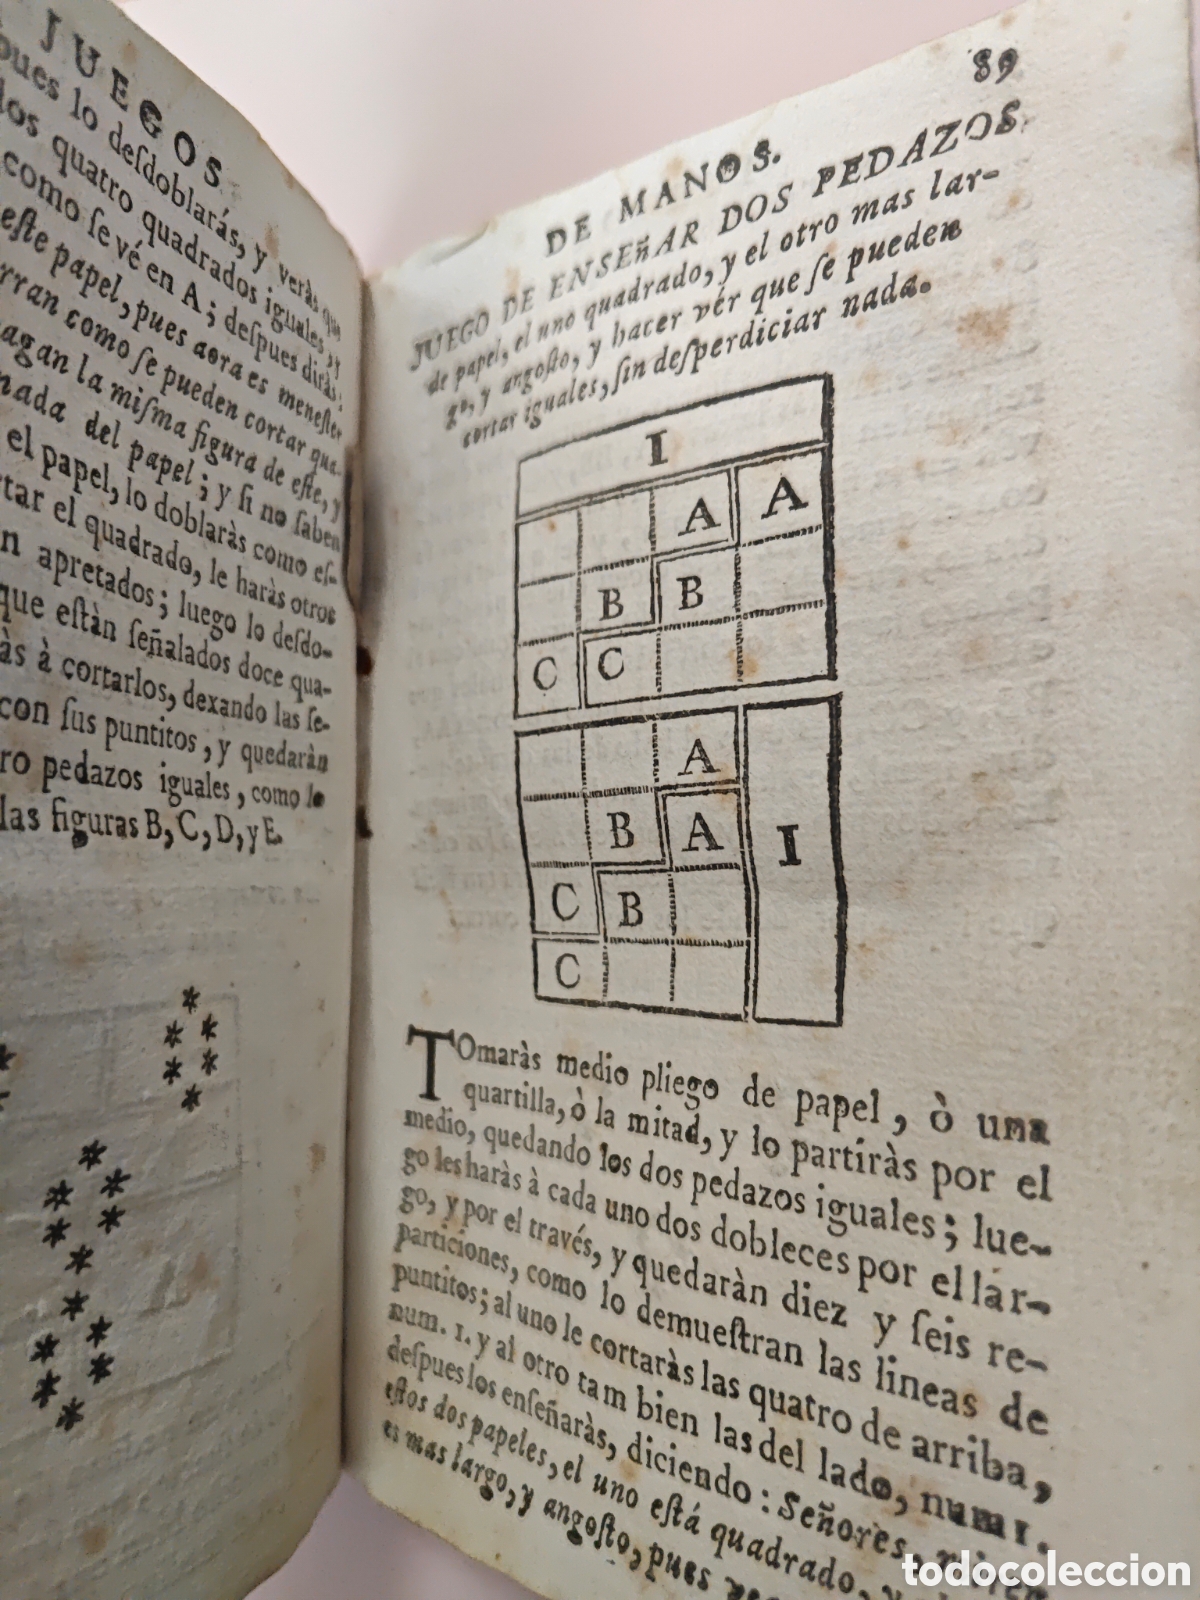 JUEGOS
pues lo desdoblarás, y veràs que
los quatro quadrados iguales, y
como se vé en A; despues diràs:
este papel, pues aora es menester
como se pueden cortar qua-
hagan la misma figura de este, y
nada del papel; y si no saben
el papel, lo doblaràs como es-
el quadrado, le haràs otros
apretados; luego lo desdo-
que estàn señalados doce qua-
às à cortarlos, dexando las se-
con sus puntitos, y quedaràn
pedazos iguales, como lo
las figuras B, C, D, y E.
89
DE MANOS.
JUEGO DE ENSEñAR DOS PEDAZOS
de papel, el uno quadrado, y el otro mas lar-
go, y angosto, y hacer vér que se pueden
cortar iguales, sin desperdiciar nada.
I
A A
B B
C C
A
B A
C B
C
I
TOmaràs medio pliego de papel, ò una
quartilla, ò la mitad, y lo partiràs por el
medio, quedando los dos pedazos iguales; lue-
go les haràs à cada uno dos dobleces por el lar-
go, y por el través, y quedaràn diez y seis re-
particiones, como lo demuestran las lineas de
puntitos; al uno le cortaràs las quatro de arriba,
num. 1. y al otro tam bien las del lado, num 1.
despues los enseñaràs, diciendo: Señores, miren
estos dos papeles, el uno está quadrado, y
es mas largo, y angosto, pues
todocoleccion